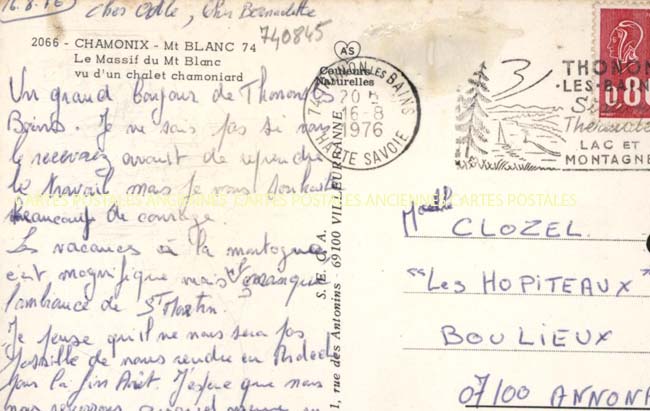 16.8.76 Chers Odile, Chers Bernadette
740845
2066 - CHAMONIX - Mt BLANC 74
Le Massif du Mt Blanc
vu d'un chalet chamoniard
AS
Couleurs
Naturelles
Un grand bonjour de Thonon les
Bains. Je ne sais pas si vous
le recevrez avant de reprendre
le travail mais je vous souhaite
beaucoup de courage.
Les vacances à la montagne
c'est magnifique mais manque
l'ambiance de St Martin.
Je pense qu'il ne nous sera pas
possible de nous rendre en Ardèche
pour la fin Août. J'espère que nous
nous
S.E.G.A.
1, rue des Antonins - 69100 VILLEURBANNE
74 THONON LES BAINS
20 H
16-8
1976
HAUTE SAVOIE
THONON
-LES-BAINS
Thermale
LAC ET
MONTAGNE
0,80
3
CLOZEL
"Les HOPITEAUX"
BOULIEUX
07100 ANNONA
CARTES POSTALES ANCIENNES CARTES POSTALES ANCIENNES CARTES POSTALES